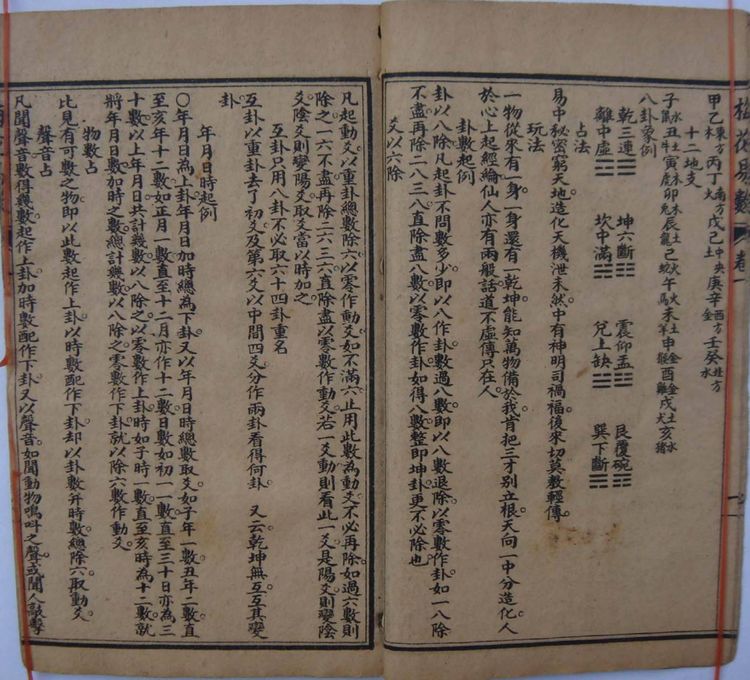 梅花易數 卷一
甲乙東方木丙丁南方火戊己中央土庚辛西方金壬癸北方水
十二地支
子水鼠丑土牛寅木虎卯木兔辰土龍巳火蛇午火馬未土羊申金猴酉金雞戌土犬亥水豬
八卦象例
乾三連☰ 坤六斷☷ 震仰盂☳ 艮覆碗☶
離中虛☲ 坎中滿☵ 兌上缺☱ 巽下斷☴
占法
易中秘密窮天地造化天機泄未然中有神明司禍福後來切莫教輕傳
玩法
一物從來有一身一身還有一乾坤能知萬物備於我肯把三才別立根天向一中分造化人
於心上起經綸仙人亦有兩般話道不虛傳只在人
卦數起例
卦以八除凡起卦不問數多少即以八作卦數過八數即以八數退除以零數作卦如一八除
不盡再除二八三八直除盡以零數作卦如得八數整即坤卦更不必除也
爻以六除
凡起動爻以重卦總數除六以零作動爻如不滿六止用此數為動爻不必再除如過六數則
除之一六不盡再除二六三六直除盡以零數作動爻若一爻動則看此一爻是陽爻則變陰
爻陰爻則變陽爻當以時加之
互卦只用八卦不必取六十四卦重名
互卦以重卦去了初爻及第六爻以中間四爻分作兩卦看得何卦 又云乾坤無互互其變
卦
年月日時起例
〇年月日為上卦年月日加時總為下卦又以年月日時總數取爻如子年一數丑年二數直
至亥年十二數如正月一數直至十二月亦作十二數日數如初一一數直至三十日亦為三
十數以上年月日共計幾數以八除之以零數作上卦時如子時一數直至亥時為十二數就
將年月日數加時之數總計幾數以八除之零數作下卦就以除六數作動爻
物數占
此見有可數之物即以此數起作上卦以時數配作下卦却以卦數并時數總除六取動爻
聲音占
凡聞聲音數得幾數起作上卦加時數配作下卦又以聲音如聞動物鳴叫之聲或聞人敲擊